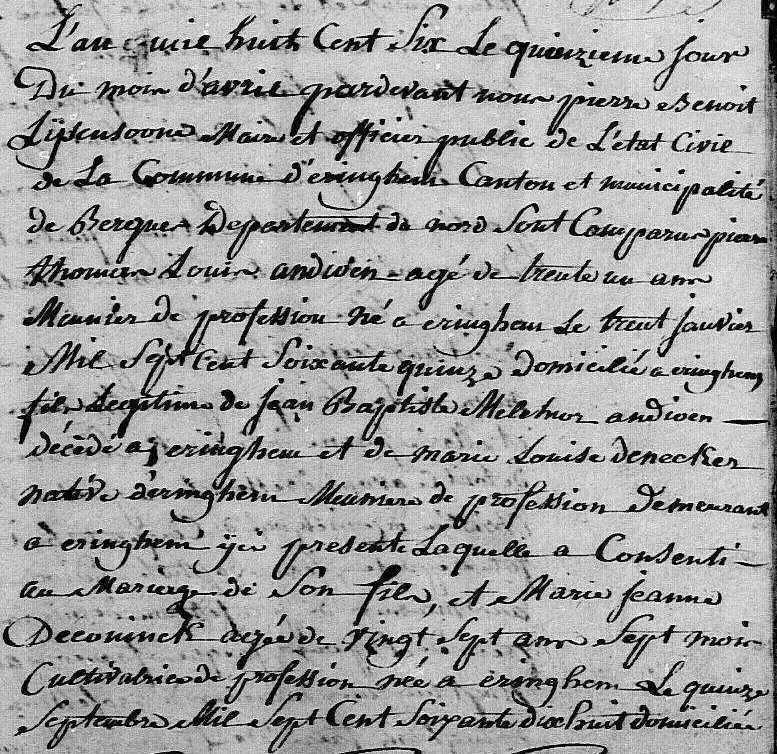 L'an mil huit Cent Six Le quinzieme jour
Du mois d'avril pardevant nous pierre Benoit
Maire et officier public de L'état Civil
de La Commune d'eringhem Canton et municipalité
de Bergues Departement du nord Sont Comparus pierre
thomas Louis andiven agé de trente un ans
Meunier de profession né a eringhem Le trent janvier
Mil Sept Cent Soixante quinze domicilié a eringhem
fils Legitime de jean Baptiste Melchior andiven
décédé a eringhem et de marie Louise denecker
native d'eringhem Meuniere de profession Demeurant
a eringhem ici presente Laquelle a Consenti
au Mariage de Son fils, et Marie jeanne
Deconinck agée de vingt Sept ans Sept mois
Cultivatrice de profession née a eringhem Le quinze
Septembre Mil Sept Cent Soixante dix huit domiciliée